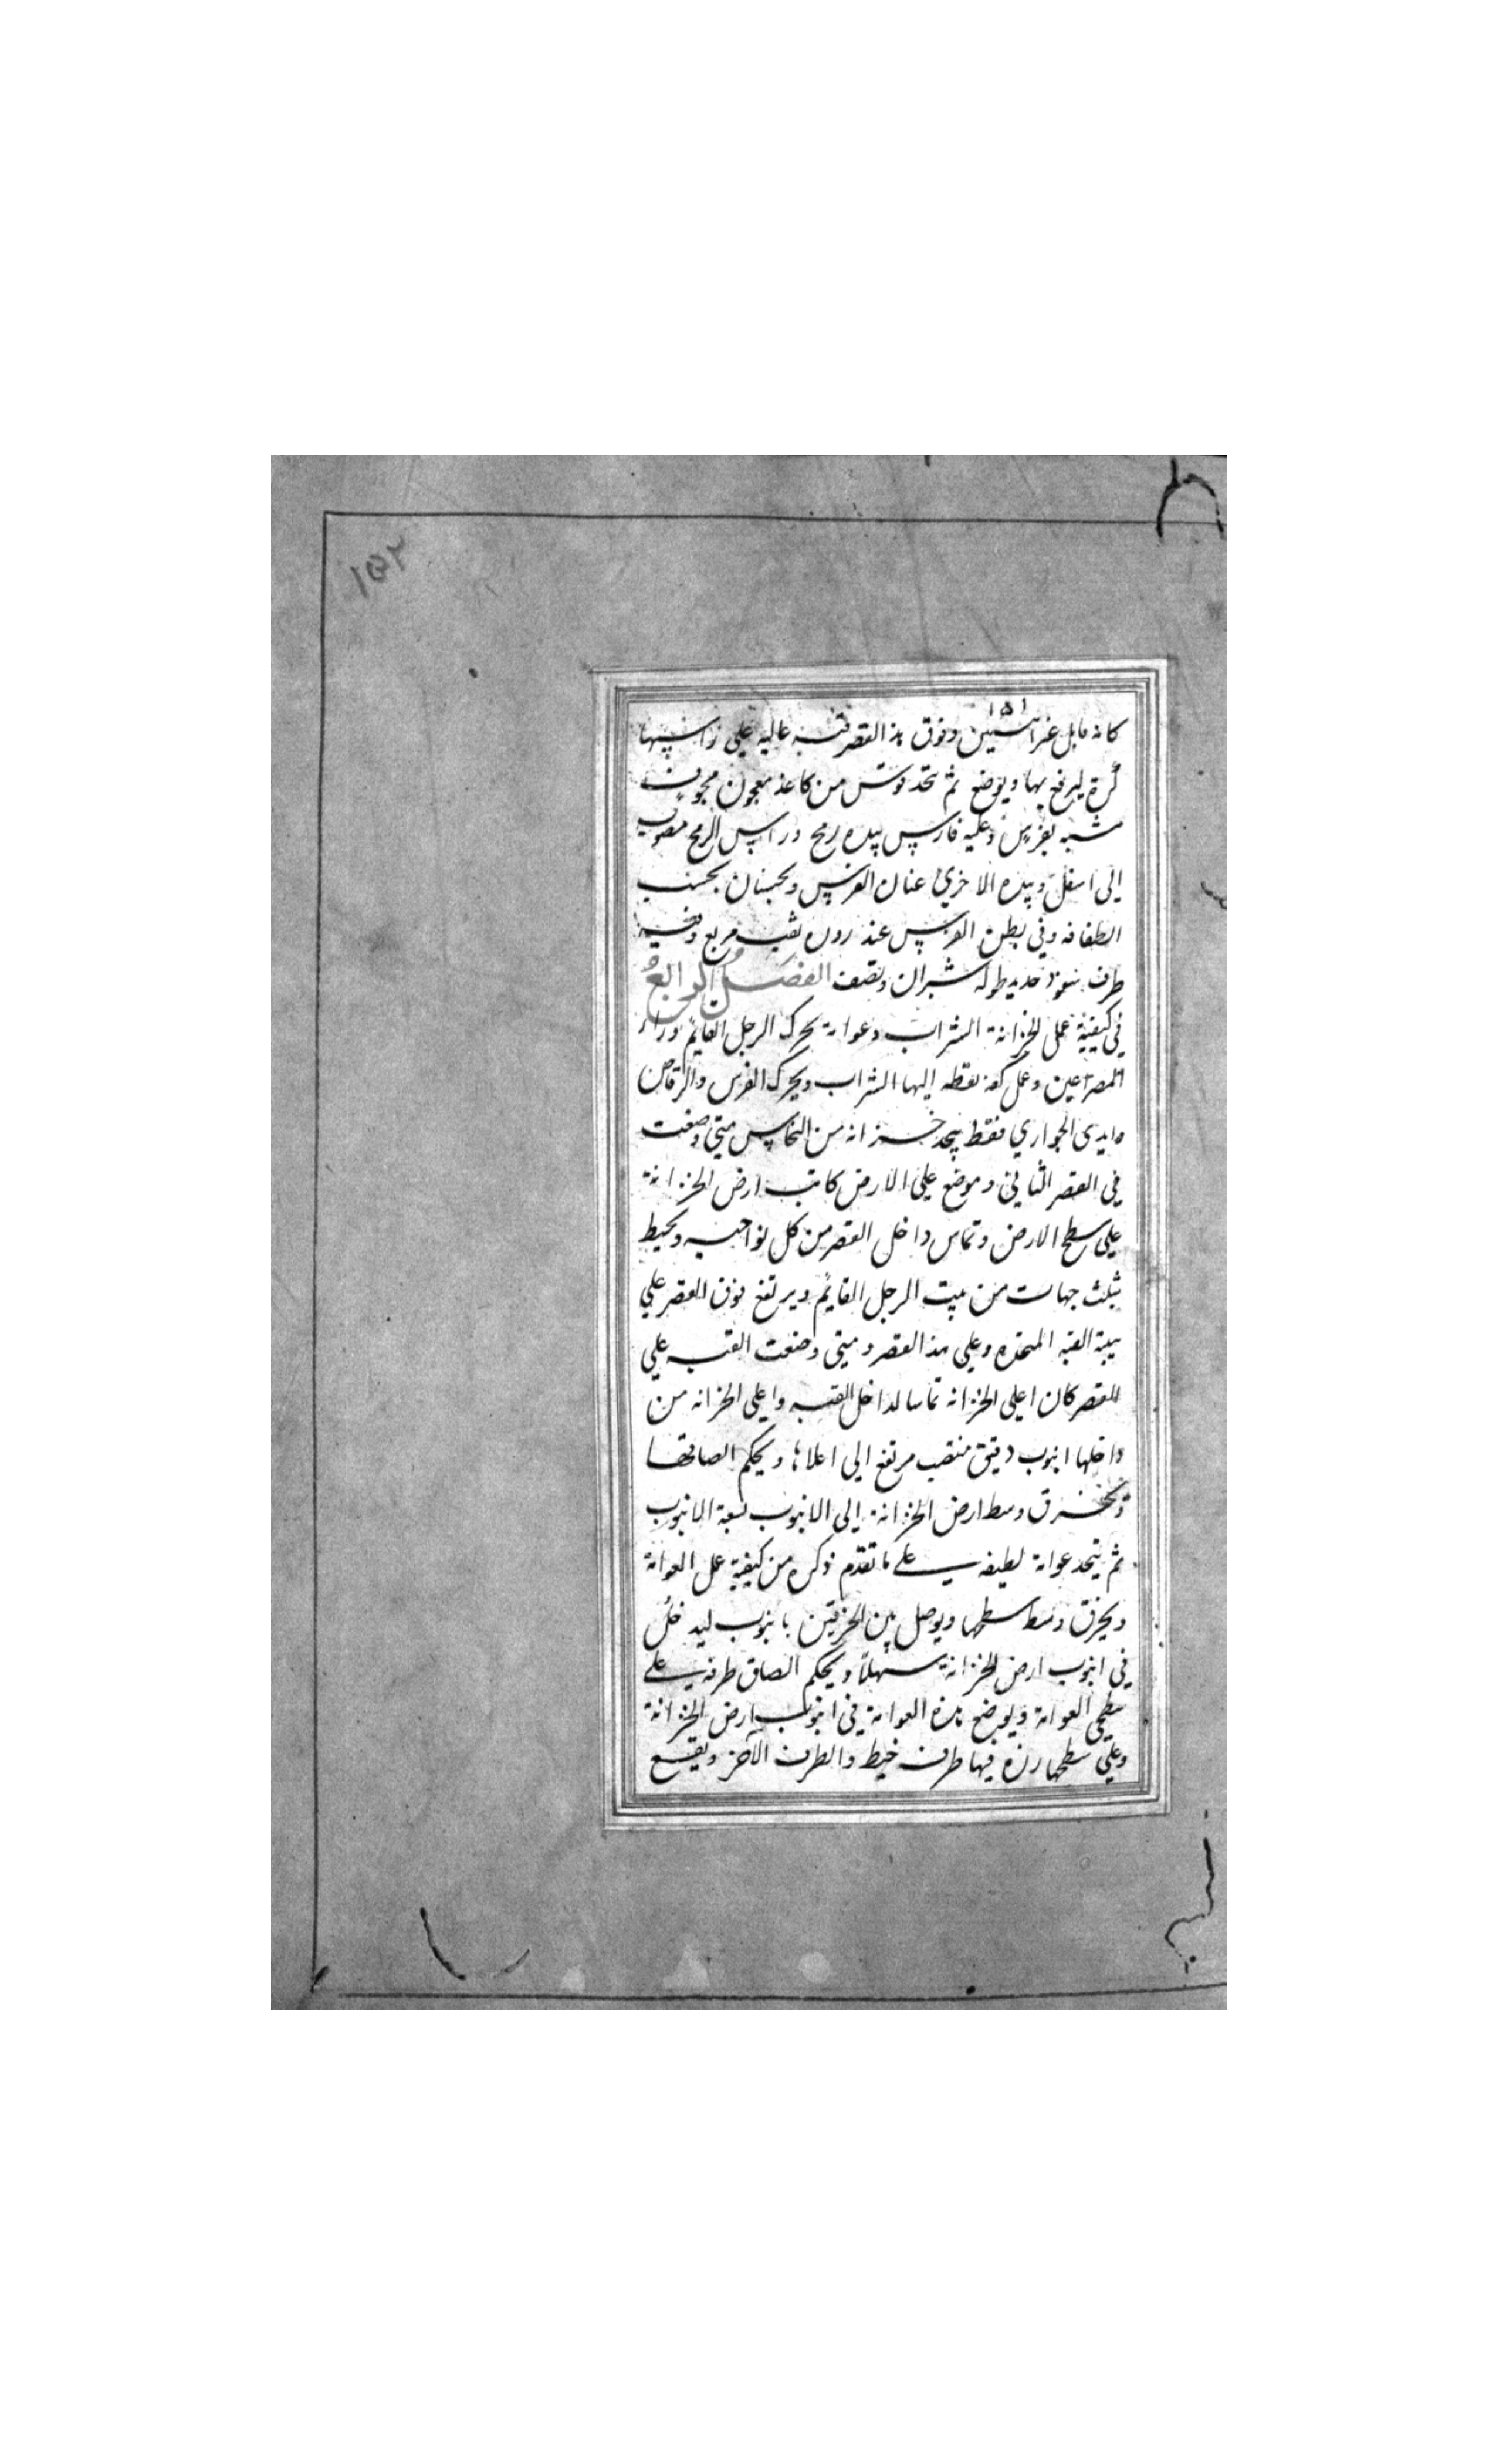 ١٥٢
١٥١
كانه مايل وفوق هذا القصر قبة عاليه على راسها
كرة ليرفع بها ويوضع ثم يتخذ فرس من كاغذ معجون مجوف
شبه بفرس وعليه فارس بيده رمح وراس الرمح مصوب
الى اسفل وبيده الاخرى عنان الفرس ويحسنان بحسب
الطاقة وفي بطن الفرس عند زوره ثقب مربع وفيه
طرف عمود حديد طوله شبران ونصف الفصل الرابع
في كيفية عمل الخزانة الشراب وعوامة تحرك الرجل القايم وراء
المصراعين وعمل كفة يقطر اليها الشراب ويحرك الفرس والرقاص
وايدى الجواري فقط يتخذ خزانه من النحاس متى وضعت
في القصر الثاني و موضع على الارض كانت ارض الخزانة
على سطح الارض وتماس داخل القصر من كل نواحيه ويحيط
بثلث جهات من بيت الرجل القايم ويرتفع فوق القصر على
هيئة القبة المتخذه وعلى هذا القصر ومتى وضعت القبه على
القصر كان اعلى الخزانه مماسا لداخل القبه واعلى الخزانه من
داخلها انبوب دقيق منتصب مرتفع الى اعلاها ويحكم الصاقها
ويخرق وسط ارض الخزانة الى الانبوب بسعة الانبوب
ثم يتخذ عوامة لطيفه على ما تقدم ذكره من كيفية عمل العوامة
ويخرق وسط سطحها ويوصل بين الخرقين بانبوب ليدخل
في انبوب ارض الخزانة سهلا ويحكم الصاق طرفيه على
سطحي العوامة ويوضع هذه العوامة في انبوب ارض الخزانة
وعلى سطحها رزه فيها طرف خيط والطرف الآخر ويقع